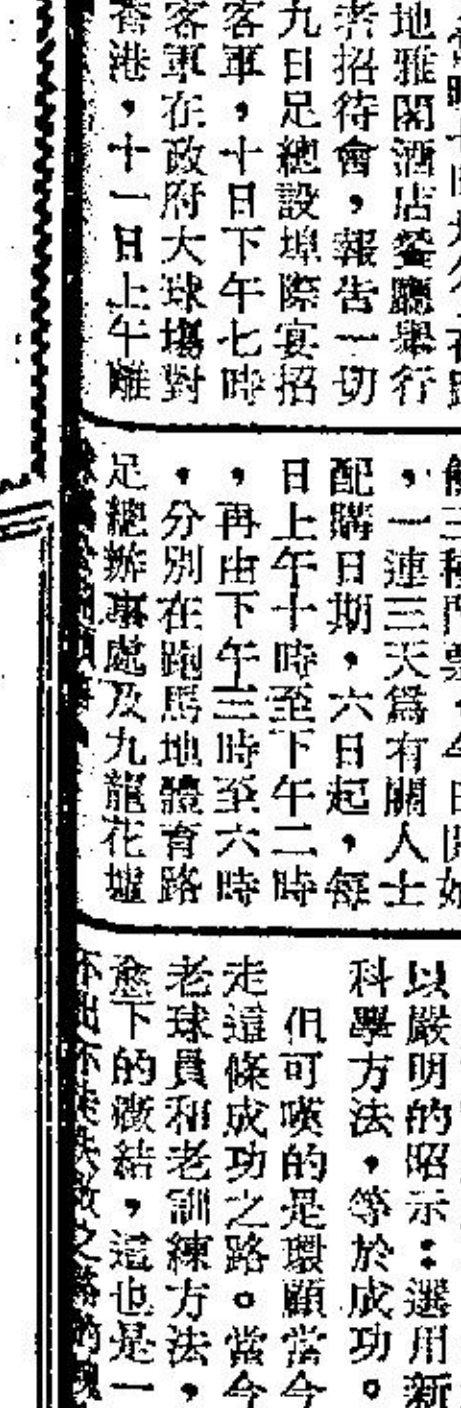 地雅閣酒店餐廳舉行
者招待會，報告一切
九日足總設埠際宴招
客軍，十日下午七時
客軍在政府大球場對
香港，十一日上午離
，一連三天爲有關人士
配購日期，六日起，每
日上午十時至下午二時
，再由下午三時至六時
，分別在跑馬地體育路
足總辦事處及九龍花墟
以嚴明的昭示：選用新
科學方法，等於成功。
但可嘆的是環顧當今
走這條成功之路。當今
老球員和老訓練方法，
愈下的癥結，這也是一